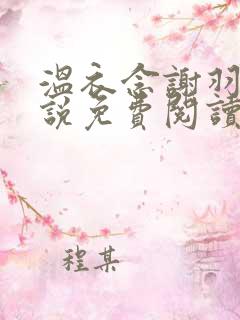 溫衣念謝羽
說免費閱讀
程某